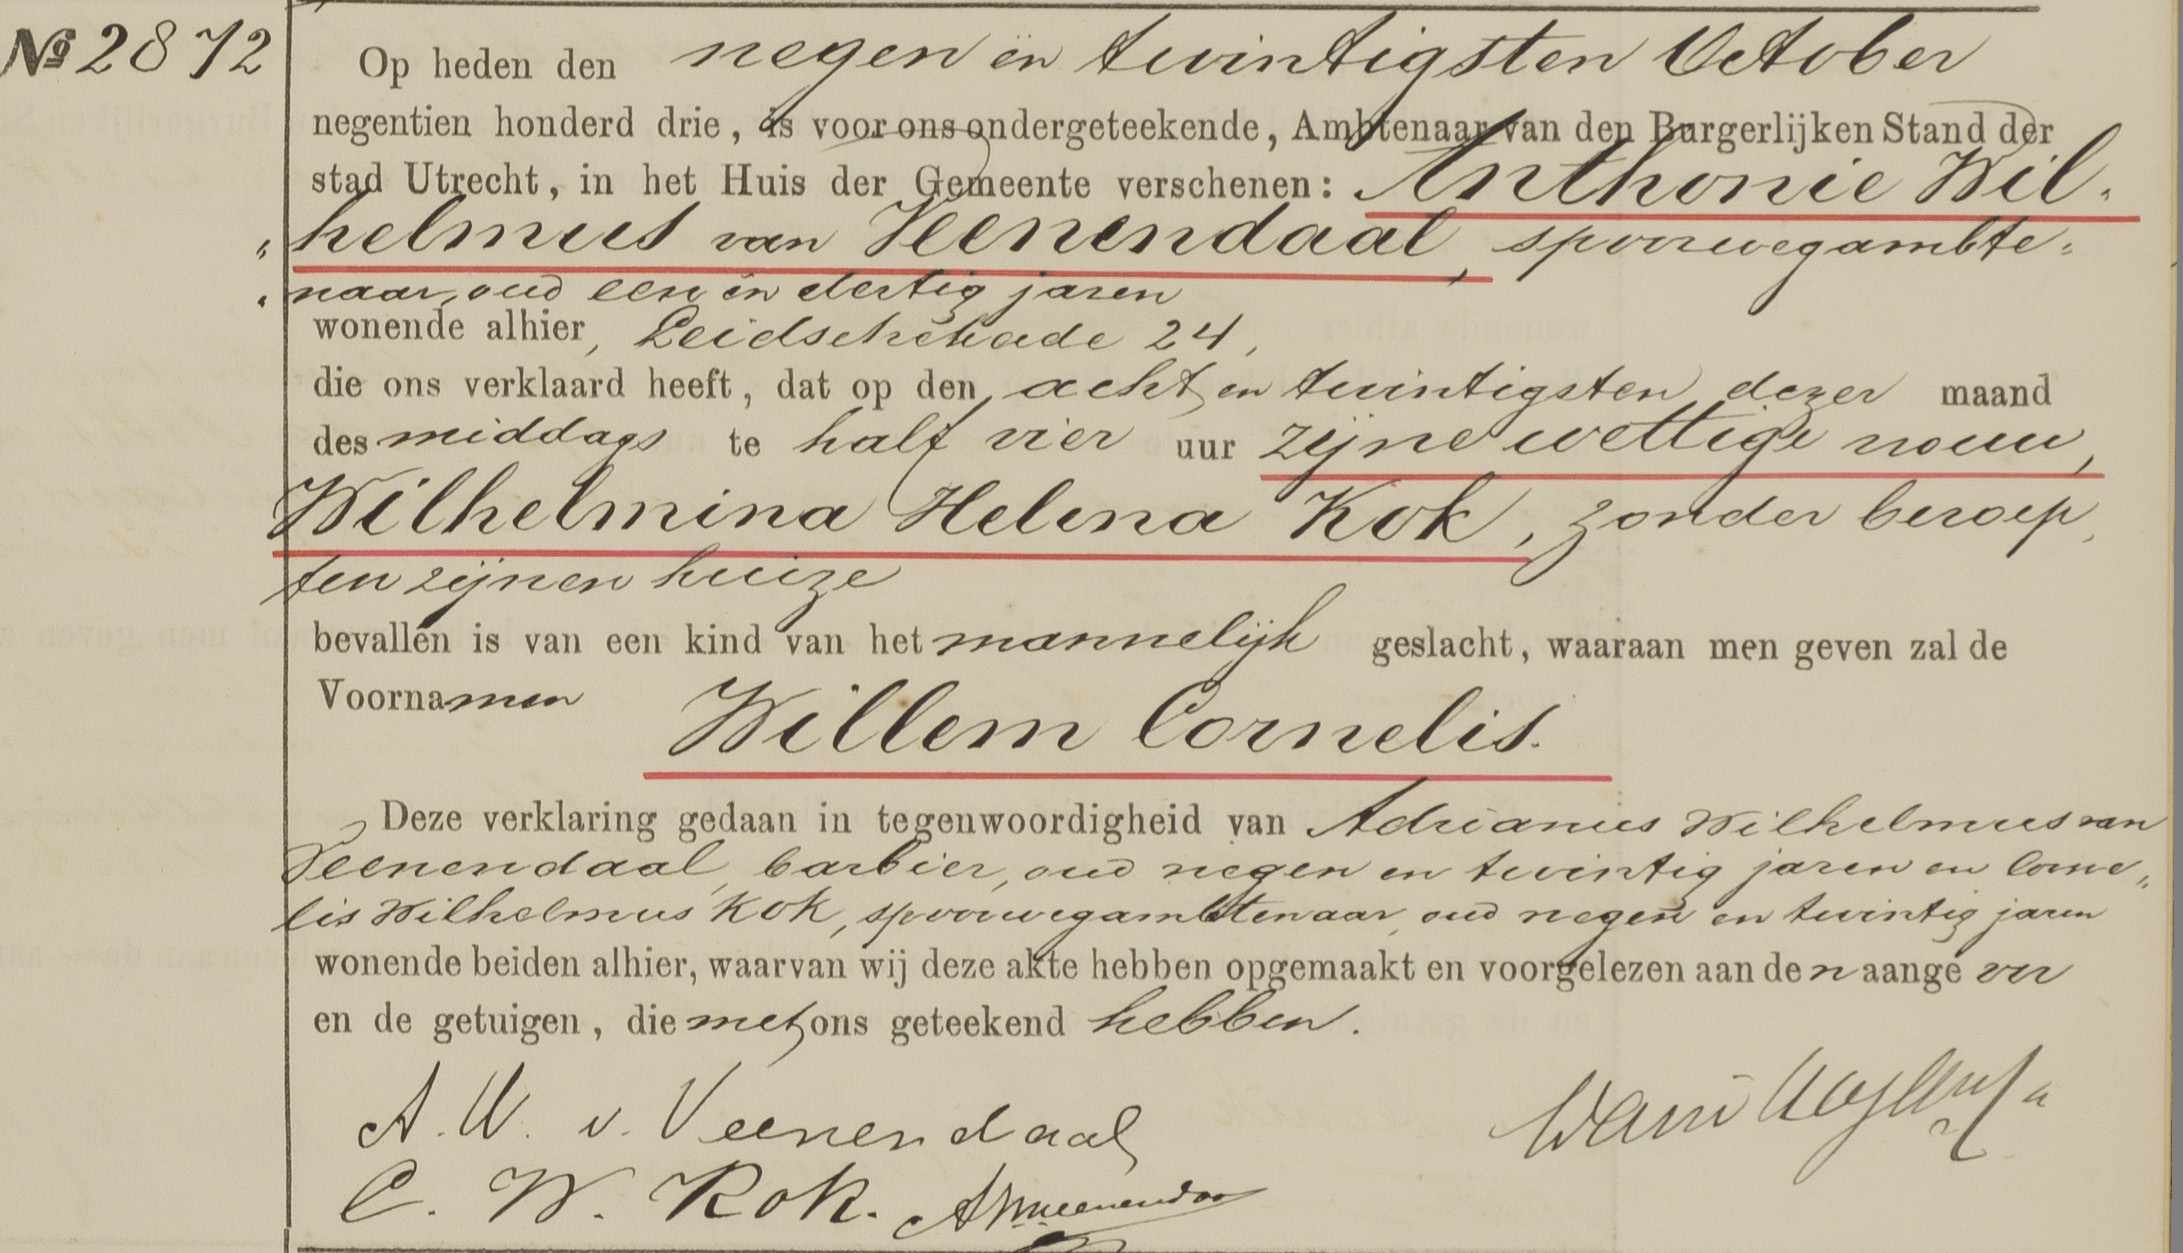 № 2872
Op heden den negen en twintigsten October
negentien honderd drie, is voor ons ondergeteekende, Ambtenaar van den Burgerlijken Stand der
stad Utrecht, in het Huis der Gemeente verschenen: Anthonie Wil-
„helmus van Veenendaal, spoorwegambte-
„naar, oud een en dertig jaren
wonende alhier, Leidschekade 24,
die ons verklaard heeft, dat op den acht en twintigsten dezer maand
des middags te half vier uur zijne wettige vrouw,
Wilhelmina Helena Kok, zonder beroep,
ten zijnen huize
bevallen is van een kind van het mannelijk geslacht, waaraan men geven zal de
Voornamen Willem Cornelis.
Deze verklaring gedaan in tegenwoordigheid van Adrianus Wilhelmus van
Veenendaal, barbier, oud negen en twintig jaren en Corne„
lis Wilhelmus Kok, spoorwegambtenaar, oud negen en twintig jaren
wonende beiden alhier, waarvan wij deze akte hebben opgemaakt en voorgelezen aan den aange ver
en de getuigen, die met ons geteekend hebben.
A. W. v. Veenendaal
C. W. Kok. AWvVeenendaal